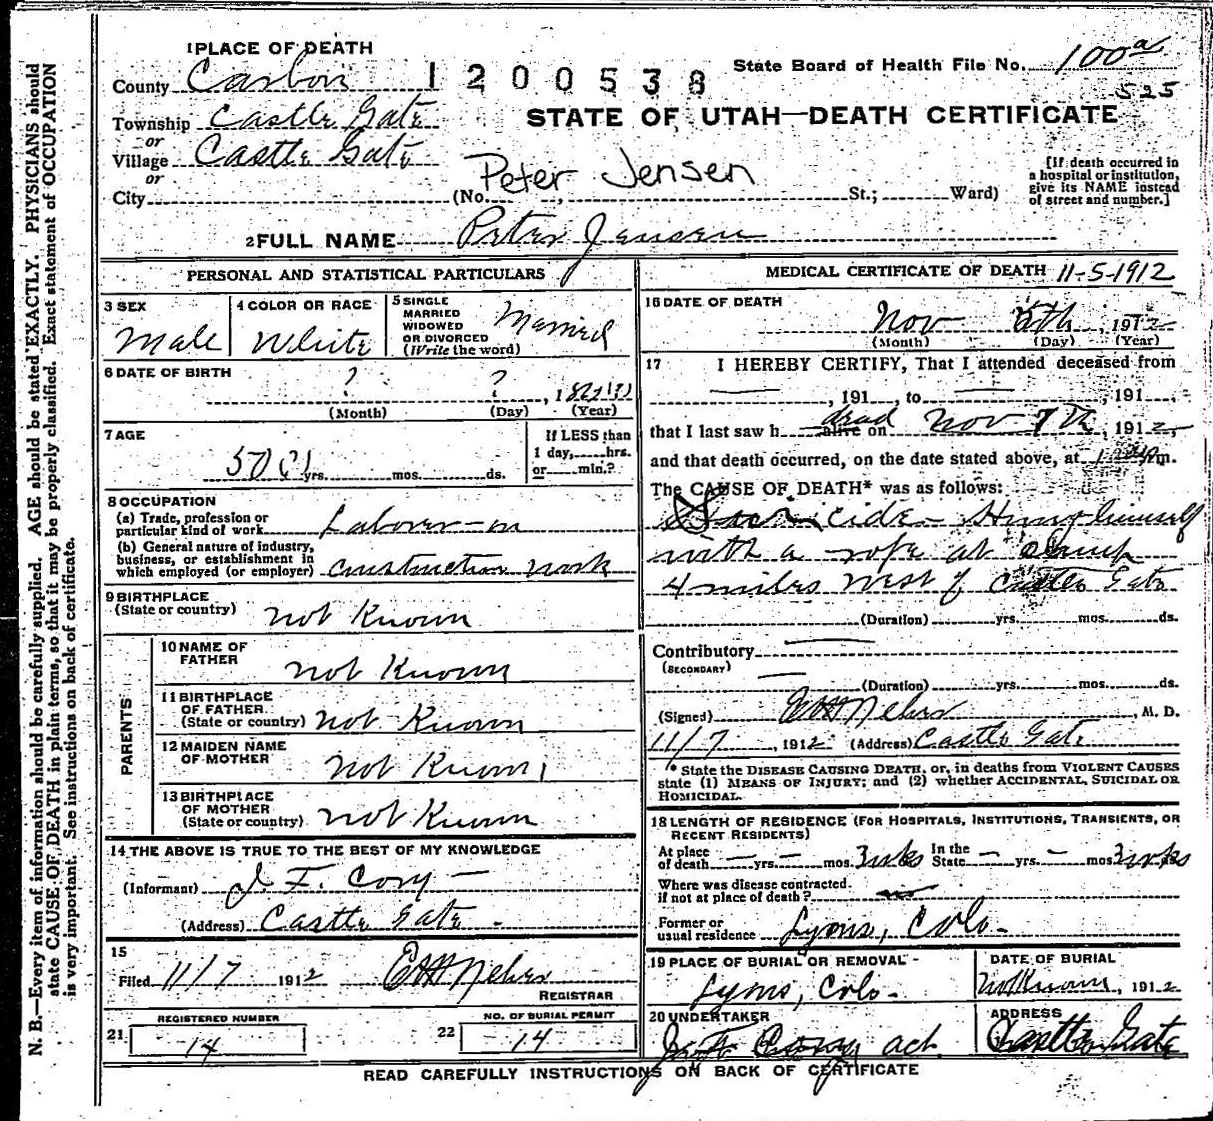 1 PLACE OF DEATH
County Carbon
1200538
State Board of Health File No. 100a
525
Township Castle Gate
STATE OF UTAH—DEATH CERTIFICATE
or
Village Castle Gate
or
City
Peter Jensen
(No. , St.; Ward)
[If death occurred in
a hospital or institution,
give its NAME instead
of street and number.]
2 FULL NAME Peter Jensen
PERSONAL AND STATISTICAL PARTICULARS
3 SEX
Male
4 COLOR OR RACE
White
5 SINGLE
MARRIED
WIDOWED
OR DIVORCED
(Write the word)
Married
6 DATE OF BIRTH
? ? , 1
(Month) (Day) (Year)
7 AGE
50 yrs. mos. ds.
If LESS than
1 day, hrs.
or min.?
8 OCCUPATION
(a) Trade, profession or
particular kind of work Laborer—on
(b) General nature of industry,
business, or establishment in
which employed (or employer) construction work
9 BIRTHPLACE
(State or country) not Known
PARENTS
10 NAME OF
FATHER not Known
11 BIRTHPLACE
OF FATHER
(State or country) not Known
12 MAIDEN NAME
OF MOTHER not Known
13 BIRTHPLACE
OF MOTHER
(State or country) not Known
14 THE ABOVE IS TRUE TO THE BEST OF MY KNOWLEDGE
(Informant) J. F. Cory
(Address) Castle Gate
15
Filed 11/7 1912
REGISTRAR
REGISTERED NUMBER
21 14
NO. OF BURIAL PERMIT
22 14
MEDICAL CERTIFICATE OF DEATH 11-5-1912
16 DATE OF DEATH
Nov 5th , 1912
(Month) (Day) (Year)
17 I HEREBY CERTIFY, That I attended deceased from
, 191 , to , 191 ,
that I last saw h dead alive on Nov 7th, 1912,
and that death occurred, on the date stated above, at m.
The CAUSE OF DEATH* was as follows:
cide - Hung himself
with a rope at camp
4 miles West of Castle Gate
(Duration) yrs. mos. ds.
Contributory
(SECONDARY)
(Duration) yrs. mos. ds.
(Signed) , M. D.
11/7, 1912 (Address) Castle Gate
* State the DISEASE CAUSING DEATH, or, in deaths from VIOLENT CAUSES
state (1) MEANS OF INJURY; and (2) whether ACCIDENTAL, SUICIDAL OR
HOMICIDAL.
18 LENGTH OF RESIDENCE (FOR HOSPITALS, INSTITUTIONS, TRANSIENTS, OR
RECENT RESIDENTS)
At place
of death — yrs. — mos. 3 wks In the
State — yrs. — mos. 3 wks
Where was disease contracted.
if not at place of death?
Former or
usual residence Lyons, Colo.
19 PLACE OF BURIAL OR REMOVAL
Lyons, Colo.
DATE OF BURIAL
Not Known, 1912
20 UNDERTAKER
J. F. Cory act.
ADDRESS
Castle Gate
READ CAREFULLY INSTRUCTIONS ON BACK OF CERTIFICATE
N. B.—Every item of information should be carefully supplied. AGE should be stated EXACTLY. PHYSICIANS should
state CAUSE OF DEATH in plain terms, so that it may be properly classified. Exact statement of OCCUPATION
is very important. See instructions on back of certificate.